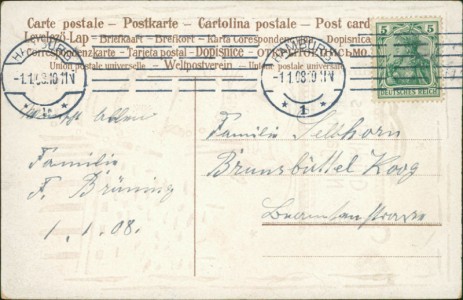 Carte postale – Postkarte – Cartolina postale – Post card
Levelező-Lap – Briefkaart – Brefkort – Karta Corespondenc
Correspondenzkarte – Tarjeta postal – Dopisnice – ОТКРЫТОЕ ПИСЬМО
Union postale universelle – Weltpostverein – Unione postale universale
HAMBURG
-1.1.08.10-11V
* 1 *
HAMBURG
-1.1.08.10-11V
* 1 *
5 5
DEUTSCHES REICH
Allen
Familie
F. Brüning
1.1.08.
Familie Selkhorn
Brunsbüttel Koog
Beamtenstrasse